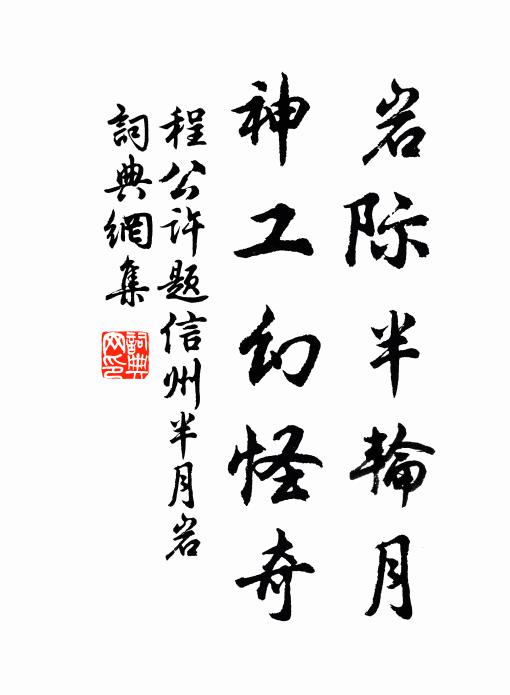 岩际半輪月
神工幻怪奇
程公许题信州半月岩
詞典網集
詞典
网印